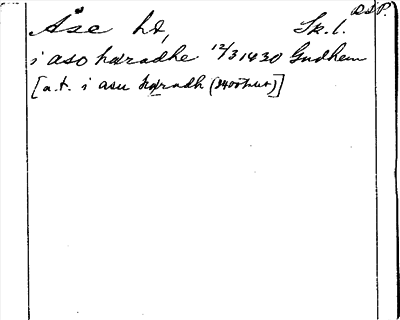 D.S.P.
Åse hd, Sk. l.
i aso hæradhe 12/3 1430 Gudhem
[a.t. i asu hæradh (1400 hut)]